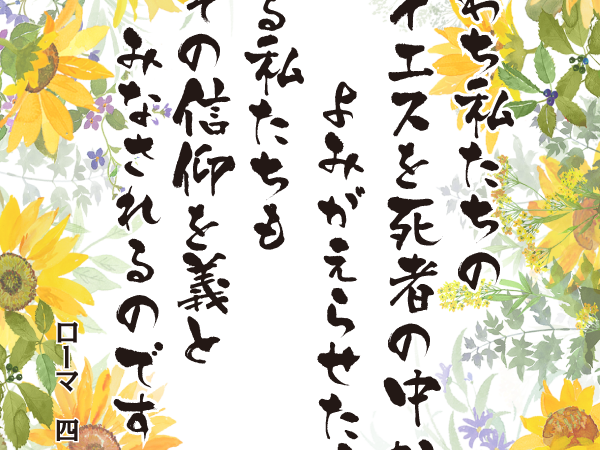 わち私たちの
イエスを死者の中か
よみがえらせた
る私たちも
その信仰を義と
みなされるのです
ローマ 四